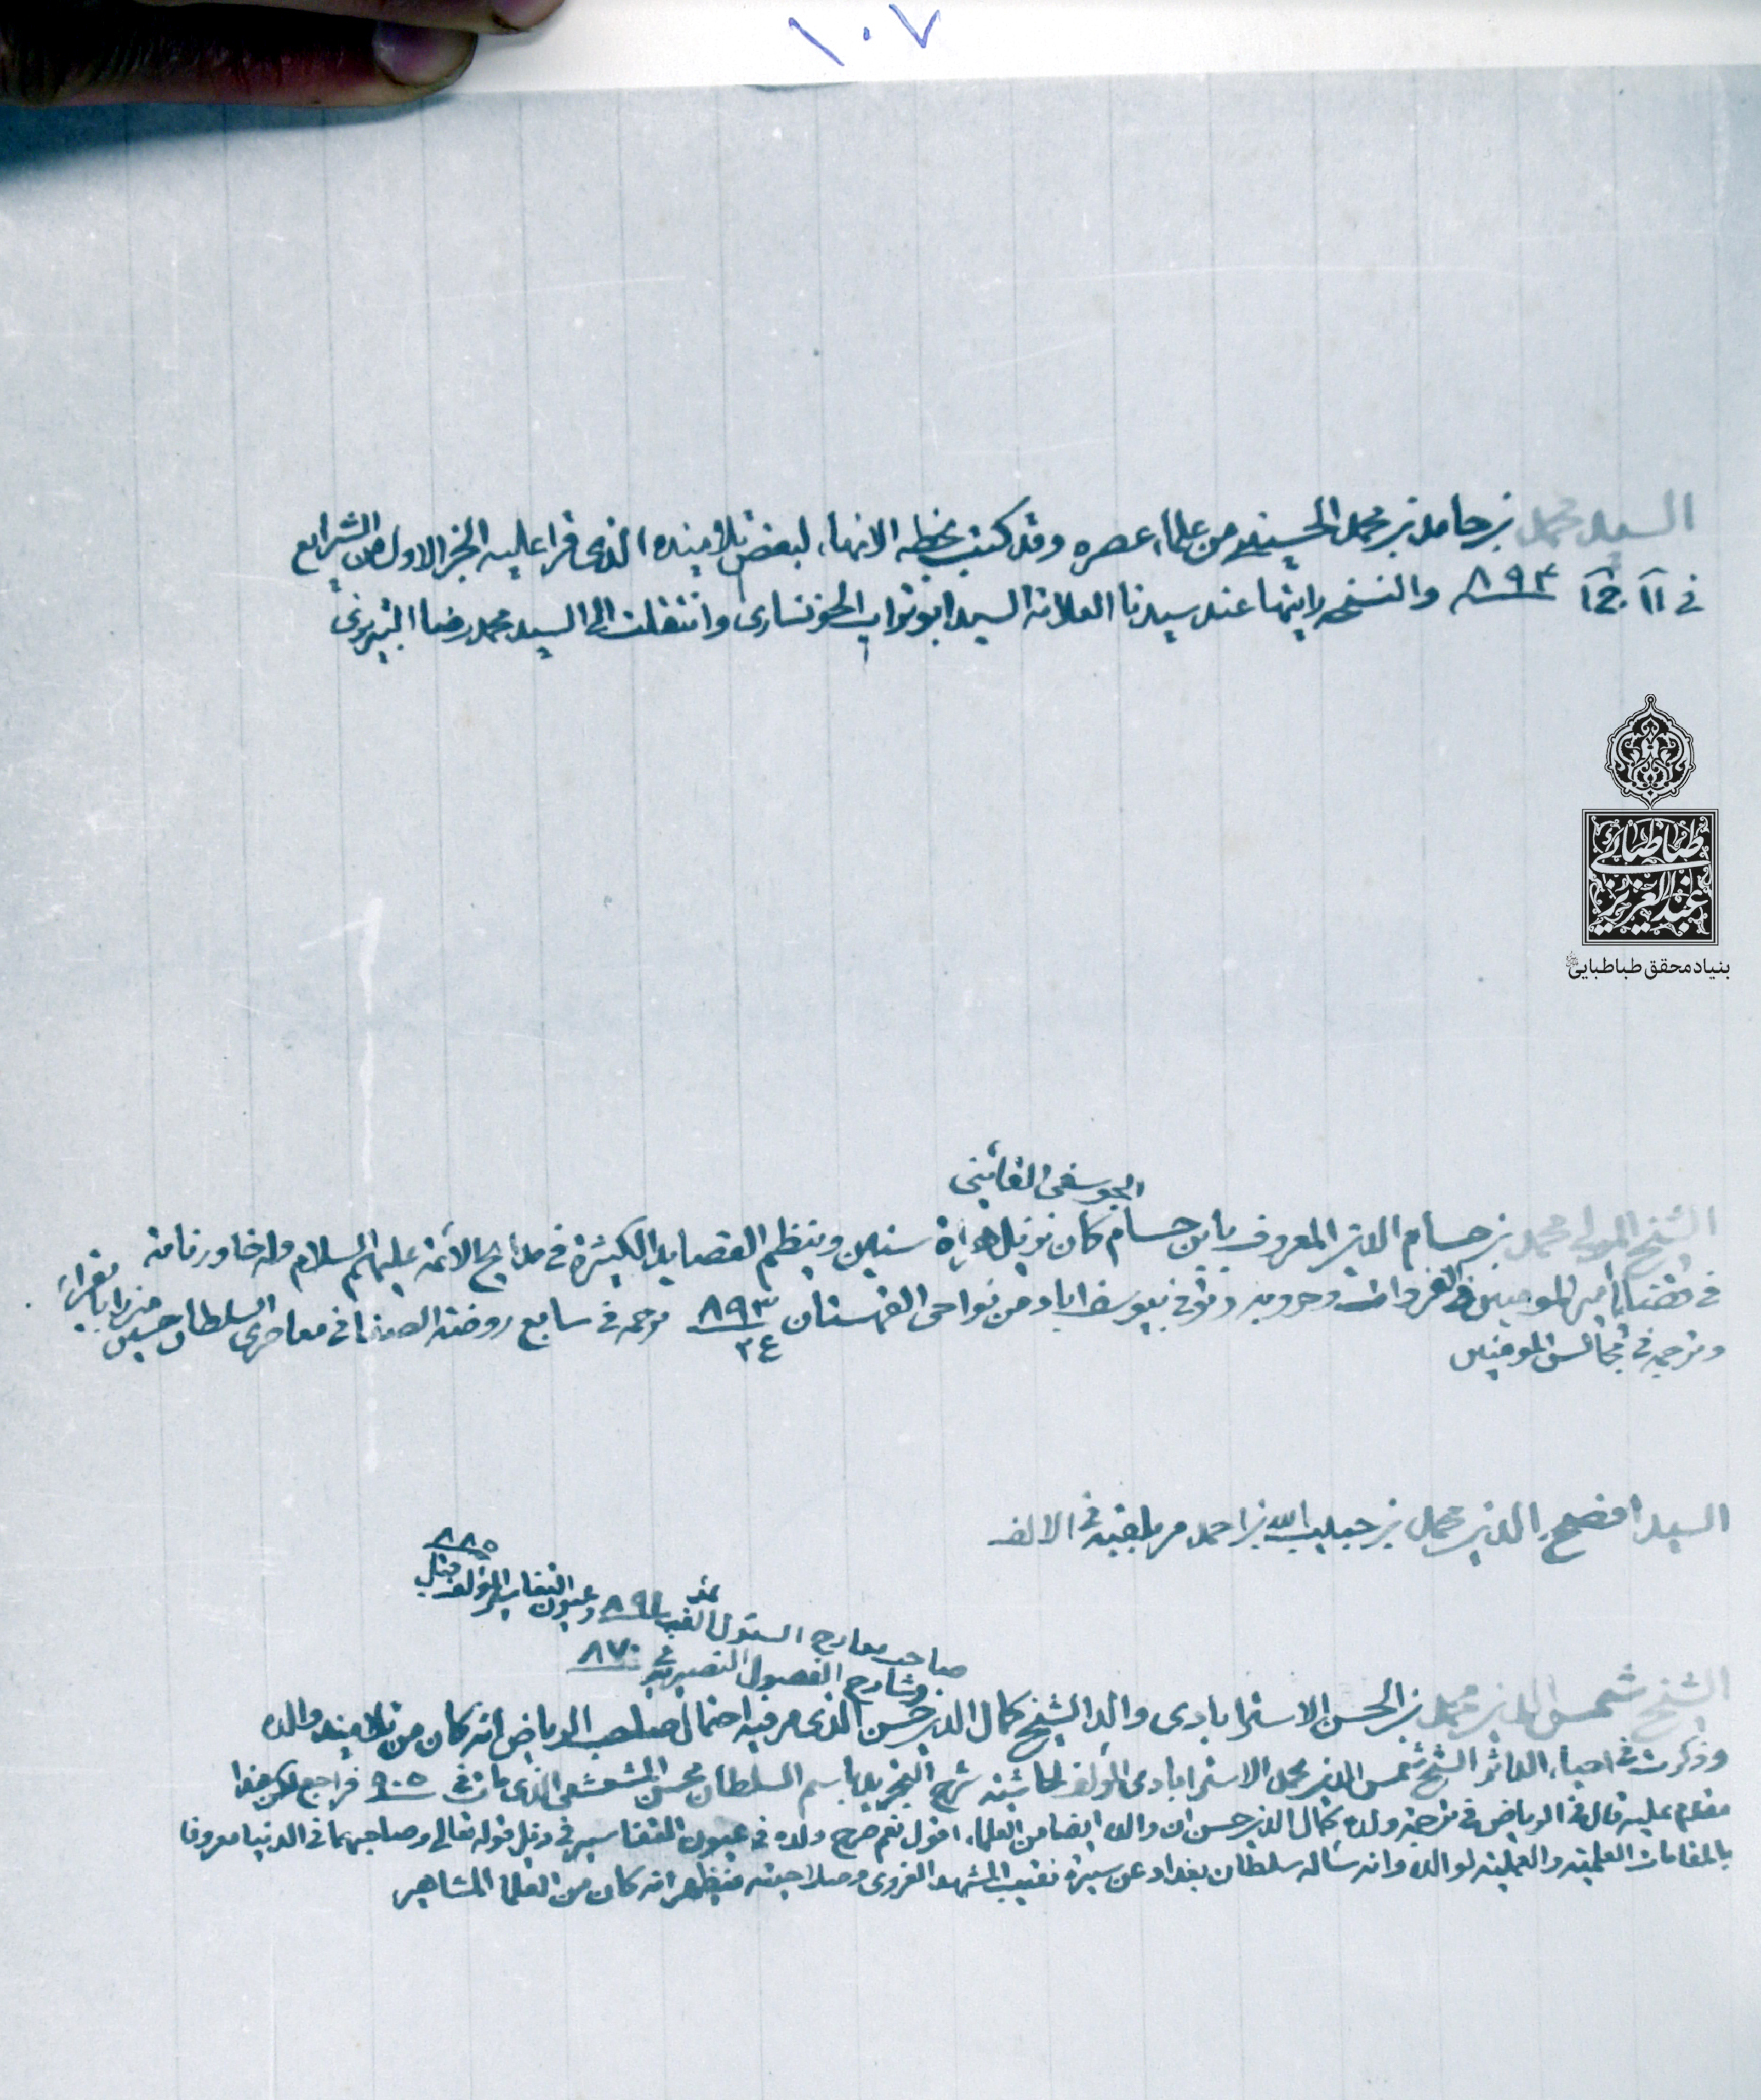 ١٠٧
السيد محمد بن حامد بن محمد الحسيني من علماء عصره وقد كتب بخطه الانهاء لبعض تلاميذه الذى قرا عليه الجزء الاول من الشرايع
في ١١ ج ١ ٨٩٤ والنسخه رايتها عند سيدنا العلامة السيد ابو تراب الخونسارى وانتقلت الى السيد محمد رضا التبريزى
طباطبائی
عبدالعزیز
بنیاد محقق طباطبایی
الجوسفى القائينى
الشيخ المولى محمد بن حسام الدين المعروف بابن حسام كان نزيل هراة سنين وينظم القصايد الكثيرة في مدايح الائمة عليهم السلام وله خاور نامه
في امير المومنين في الغزوات وحروبه وتوفي بيوسف اباد من نواحى القهستان ٨٩٣ ترجمه في سابع روضة الصفا في معاصرى السلطان حسين ميرزا بايقرا
٣٤
وترجمه في مجالس المومنين
السيد افضح الدين محمد بن حبيب الله بن احمد مر بلقبه في الالف
٨٨٥
وعيون التفاسير المؤلف قبل
صاحب معارج السئول الفه ٨٩١
وشارح الفصول النصيرية في ٨٧٠
الشيخ شمس الدين محمد بن الحسن الاسترابادى والد الشيخ كمال الدين حسن الذى مر فيه احتمال صاحب الرياض انه كان من تلاميذ والده
وذكرت في احياء الداثر الشيخ شمس الدين محمد الاسترابادى المؤلف لحاشية شرح التجريد باسم السلطان محسن المشعشعى الذى مات في ٩٠٥ فراجع لكن هذا
مقدم عليه قال في الرياض في ترجمة ولده كمال الدين حسن ان والده ايضا من العلماء اقول نعم صرح ولده في عيون التفاسير في ذيل قوله تعالى وصاحبهما في الدنيا معروفا
بالمقامات العلمية والعملية لوالده وانه ساله سلطان بغداد عن سيرة نقيب المشهد الغروى وصلاحيته فيظهر انه كان من العلما المشاهير